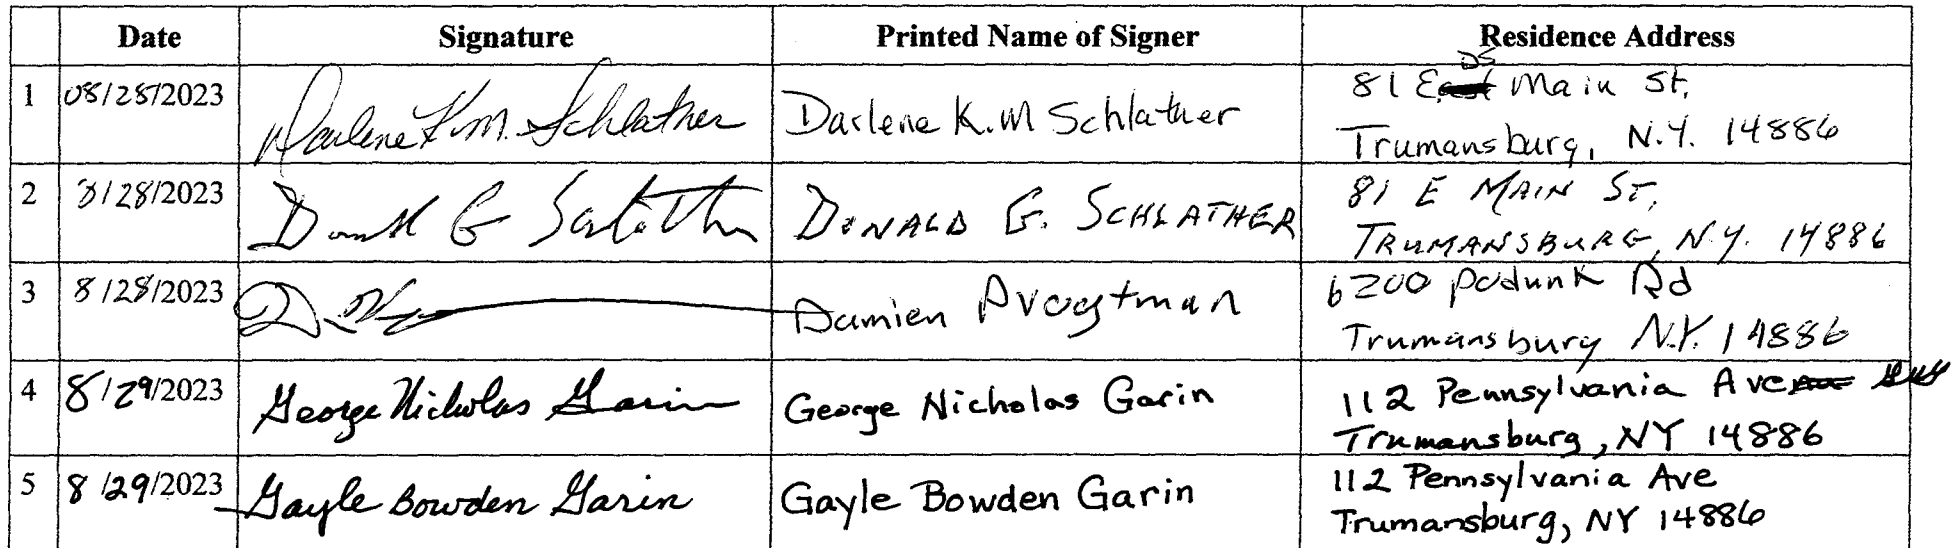 Date Signature Printed Name of Signer Residence Address
1 08/28/2023 Darlene K.M. Schlather Darlene K.M Schlather 81 E DS Main St,
Trumansburg, N.Y. 14886
2 8/28/2023 Donald G Schlather DONALD G. SCHLATHER 81 E MAIN ST,
TRUMANSBURG, N.Y. 14886
3 8/28/2023 Damien 6200 Podunk Rd
Trumansburg N.Y. 14886
4 8/29/2023 George Nicholas Garin George Nicholas Garin 112 Pennsylvania Ave
Trumansburg, NY 14886
5 8/29/2023 Gayle Bowden Garin Gayle Bowden Garin 112 Pennsylvania Ave
Trumansburg, NY 14886